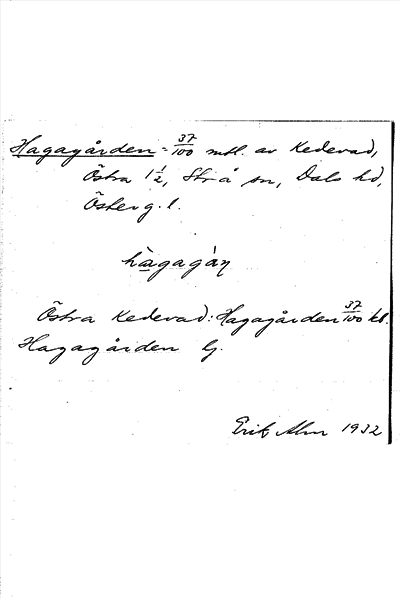 Hagagården = 37/100 mtl. av Kedevad,
Östra 1 1/2, Strå sn, Dals hd,
Österg. l.
hàgagàṇ
Östra Kedevad: Hagagården 37/100 kl.
Hagagården G.
Erik Alm 1932